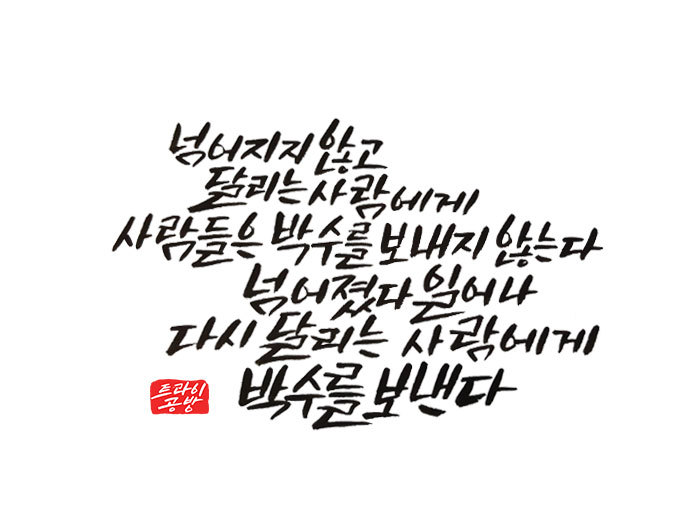 넘어지지 않고
달리는 사람에게
사람들은 박수를 보내지 않는다
넘어졌다 일어나
다시 달리는 사람에게
박수를 보낸다
트라이
공방